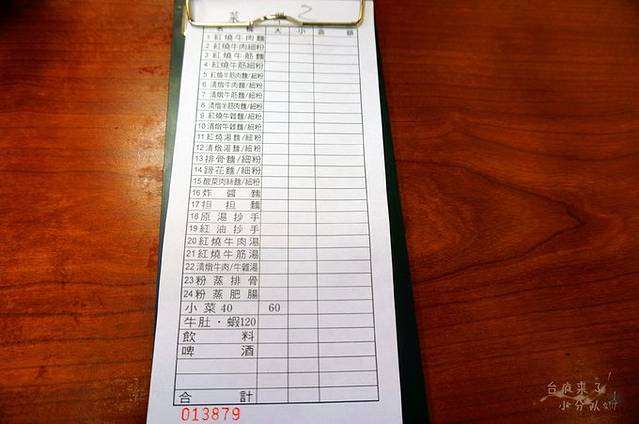 菜 單 2
名 稱 大 小 金 額
1 紅燒牛肉麵
2 紅燒牛肉細粉
3 紅燒牛筋麵
4 紅燒牛筋細粉
5 紅燒半筋肉麵/細粉
6 清燉牛肉麵/細粉
7 清燉牛筋麵/細粉
8 清燉半筋肉麵/細粉
9 紅燒牛雜麵/細粉
10 清燉牛雜麵/細粉
11 紅燒湯麵/細粉
12 清燉湯麵/細粉
13 排骨麵/細粉
14 蹄花麵/細粉
15 酸菜肉絲麵/細粉
16 炸醬麵
17 担担麵
18 原湯抄手
19 紅油抄手
20 紅燒牛肉湯
21 紅燒牛筋湯
22 清燉牛肉/牛雜湯
23 粉蒸排骨
24 粉蒸肥腸
小菜40 60
牛肚・蝦120
飲料
啤酒
合計
013879
台瘋來了!